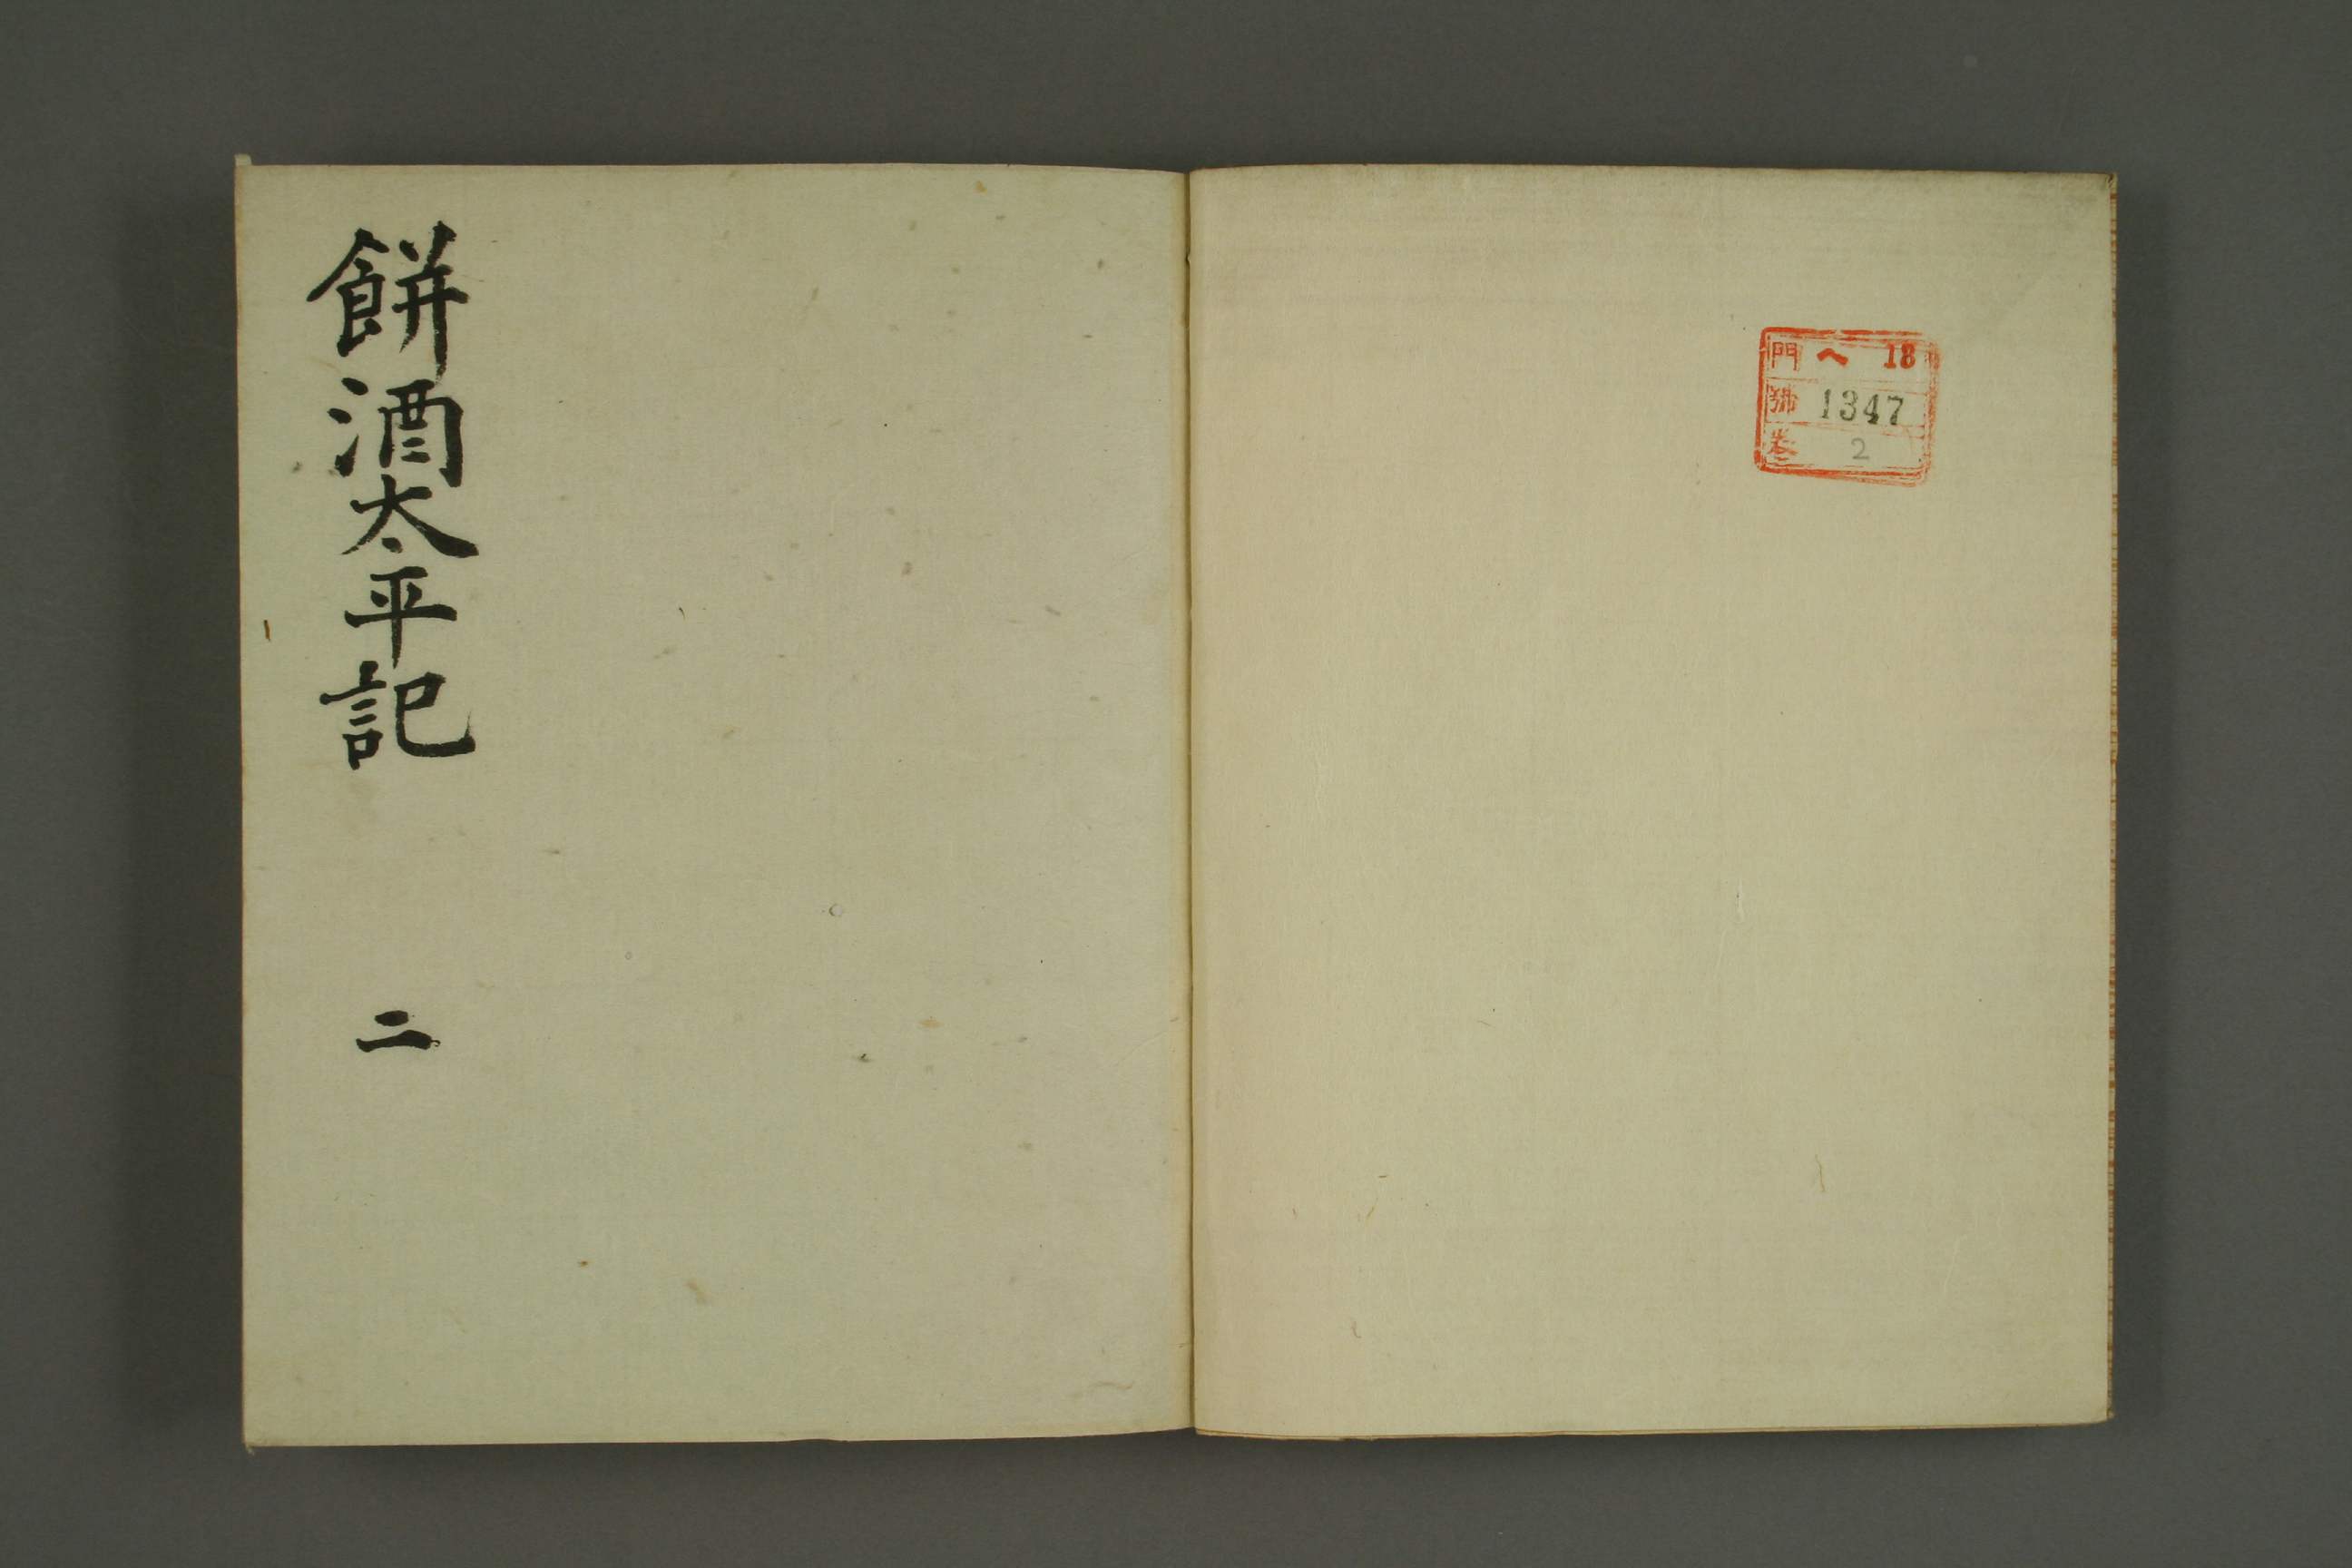 門 ヘ 18
號 1347
巻 2
餅酒太平記
二